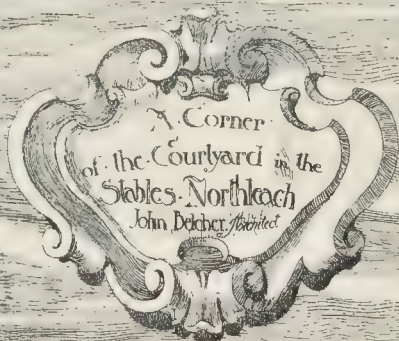 A · Corner ·
of · the · Courtyard in the
Stables · Northleach
John Belcher. Architect